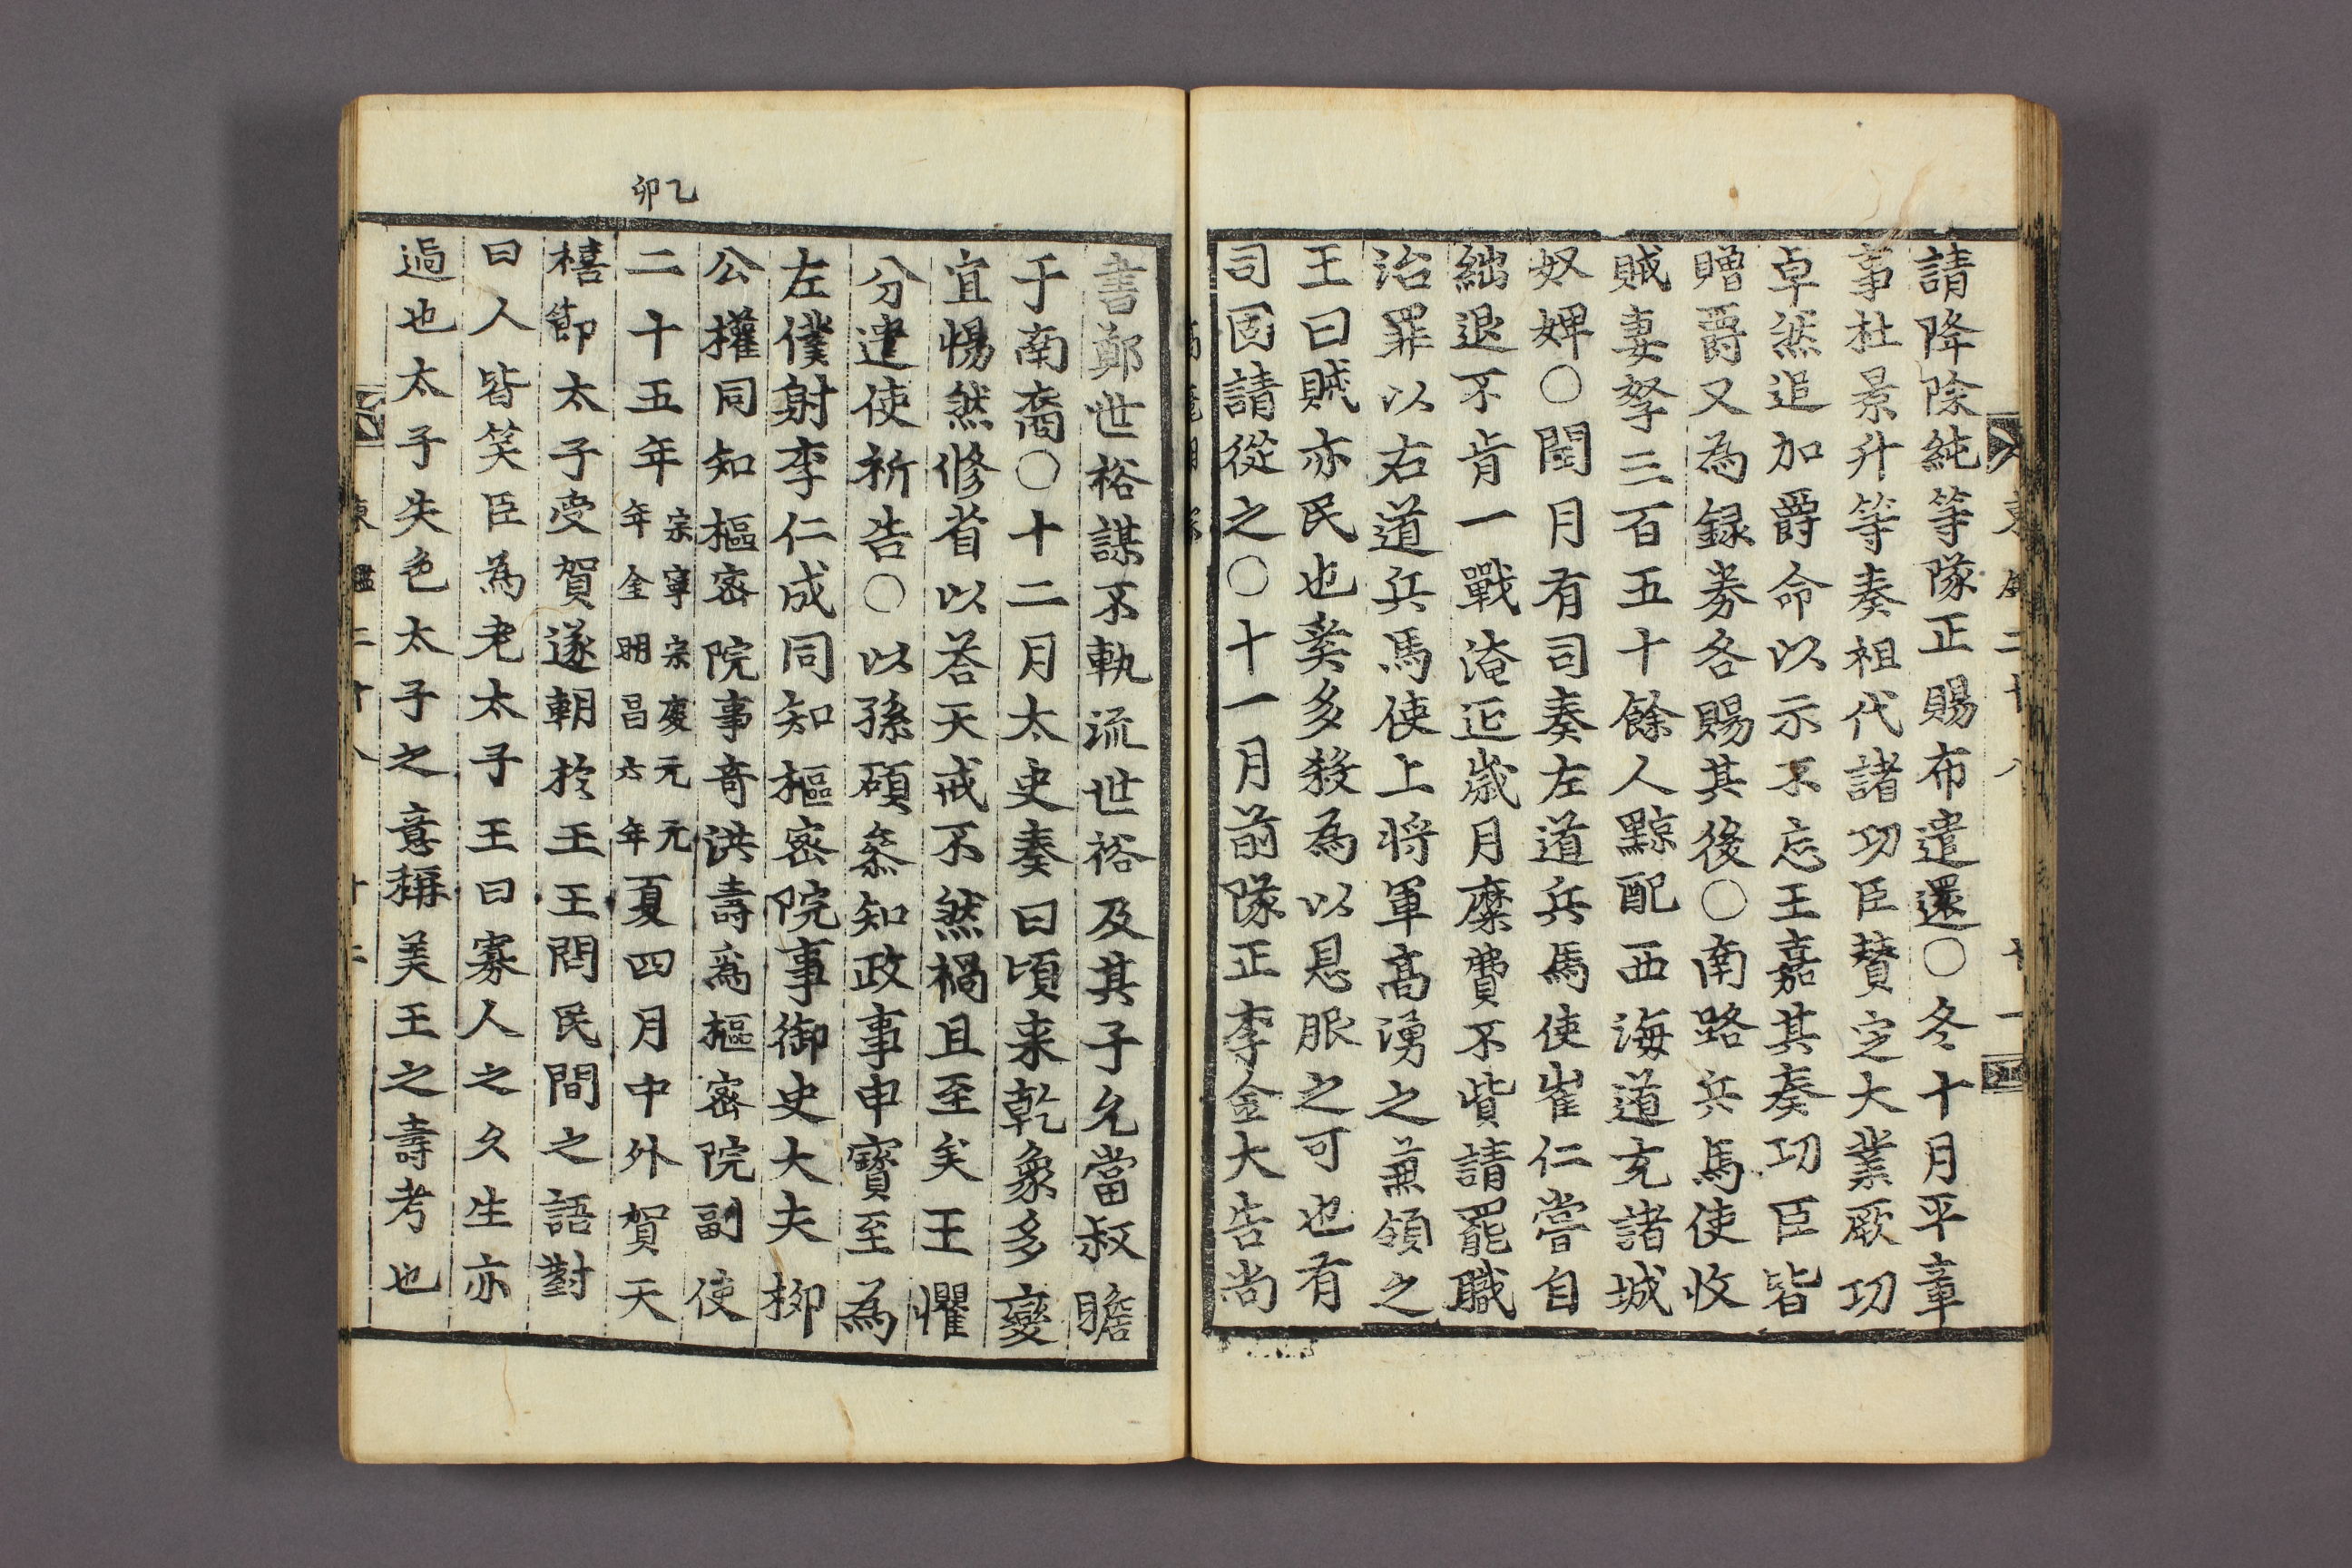 請降除純等隊正賜布遣還○冬十月平章
事杜景升等奏祖代諸功臣賛定大業厥功
卓然追加爵命以示不忘王嘉其奏功臣皆
贈爵又為録券各賜其後○南路兵馬使收
賊妻孥三百五十餘人黥配西海道充諸城
奴婢○閏月有司奏左道兵馬使崔仁嘗自
絀退不肯一戰淹延歲月糜費不貲請罷職
治罪以右道兵馬使上将軍高湧之兼領之
王曰賊亦民也奚多殺為以恩服之可也有
司固請從之○十一月前隊正李金大告尚
書鄭世裕謀不軌流世裕及其子允當叔瞻
于南裔○十二月太史奏曰頃来乾象多變
宜惕然修省以荅天戒不然禍且至矣王懼
分遣使祈告○以孫碩叅知政事申寳至為
左僕射李仁成同知樞密院事御史大夫柳
公權同知樞密院事竒洪壽爲樞密院副使
乙卯
二十五年宋寧宗慶元元年金明昌六年夏四月中外賀天
禧節太子受賀遂朝於王王問民間之語對
曰人皆笑臣為老太子王曰寡人之久生亦
過也太子失色太子之意稱美王之壽考也